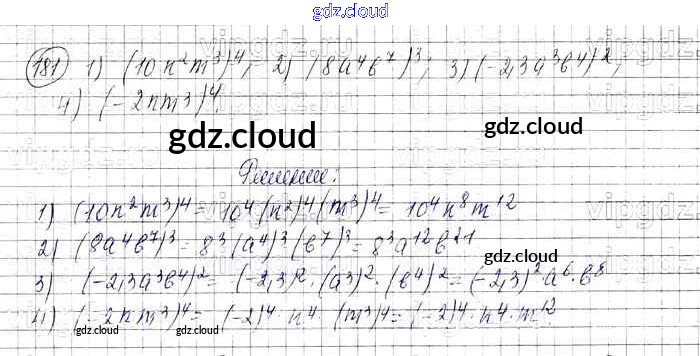 gdz.cloud
181 1) (10n²m³)⁴; 2) (8a⁴b⁷)³; 3) (-2,3a³b⁴)²;
4) (-2nm³)⁴.
gdz.cloud
gdz.cloud
Решение:
1) (10n²m³)⁴ = 10⁴(n²)⁴(m³)⁴ = 10⁴n⁸m¹²
2) (8a⁴b⁷)³ = 8³(a⁴)³(b⁷)³ = 8³a¹²b²¹
3) (-2,3a³b⁴)² = (-2,3)²·(a³)²·(b⁴)² = (-2,3)²·a⁶·b⁸
4) (-2nm³)⁴ = (-2)⁴·n⁴·(m³)⁴ = (-2)⁴·n⁴·m¹²
gdz.cloud gdz.cloud